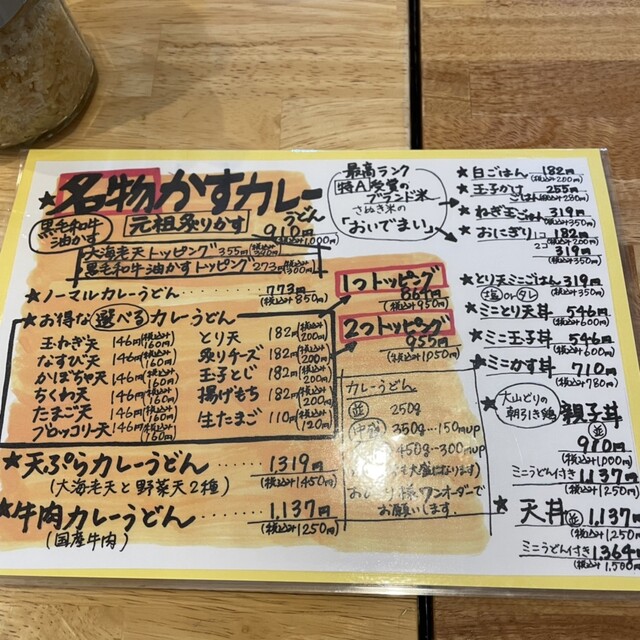 ★名物かすカレーうどん
黒毛和牛油かす
元祖炙りかす
910円
(税込み1000円)
大海老天トッピング355円
黒毛和牛油かすトッピング273円(税込み300円)
★ノーマルカレーうどん
773円
(税込み850円)
★お得な選べるカレーうどん
玉ねぎ天 146円(税込み160円)
なすび天 146円(税込み160円)
かぼちゃ天 146円(税込み160円)
ちくわ天 146円(税込み160円)
たまご天 146円(税込み160円)
ブロッコリー天 146円(税込み160円)
とり天 182円(税込み200円)
炙りチーズ 182円(税込み200円)
玉子とじ 182円(税込み200円)
揚げもち 182円(税込み200円)
生たまご 110円(税込み120円)
1つトッピング
864円
(税込み950円)
2つトッピング
955円
(税込み1050円)
★天ぷらカレーうどん……1,319円
(大海老天と野菜天2種)
(税込み1450円)
★牛肉カレーうどん……1,137円
(国産牛肉)
(税込み1250円)
カレーうどん
並 250g
中盛 350g…150円up
450g…300円up
大盛になります)
様ワンオーダーで
お願いします.
最高ランク
特A受賞の
ブランド米
さぬき米の
「おいでまい」
★白ごはん 182円
(税込み200円)
★玉子かけごはん 255円
(税込み280円)
★ねぎ玉ごはん 319円
(税込み350円)
★おにぎり 1コ 182円
(税込み200円)
2コ 319円
(税込み350円)
★とり天ミニごはん 319円
塩orタレ
(税込み350円)
★ミニとり天丼 546円
(税込み600円)
★ミニ玉子丼 546円
(税込み600円)
★ミニかす丼 710円
(税込み780円)
★大山どりの朝引き鶏
親子丼
並
910円
(税込み1,000円)
ミニうどん付き 1,137円
(税込み1,250円)
★天丼 並 1,137円
(税込み1,250円)
ミニうどん付き 1,364円
(税込み1,500円)